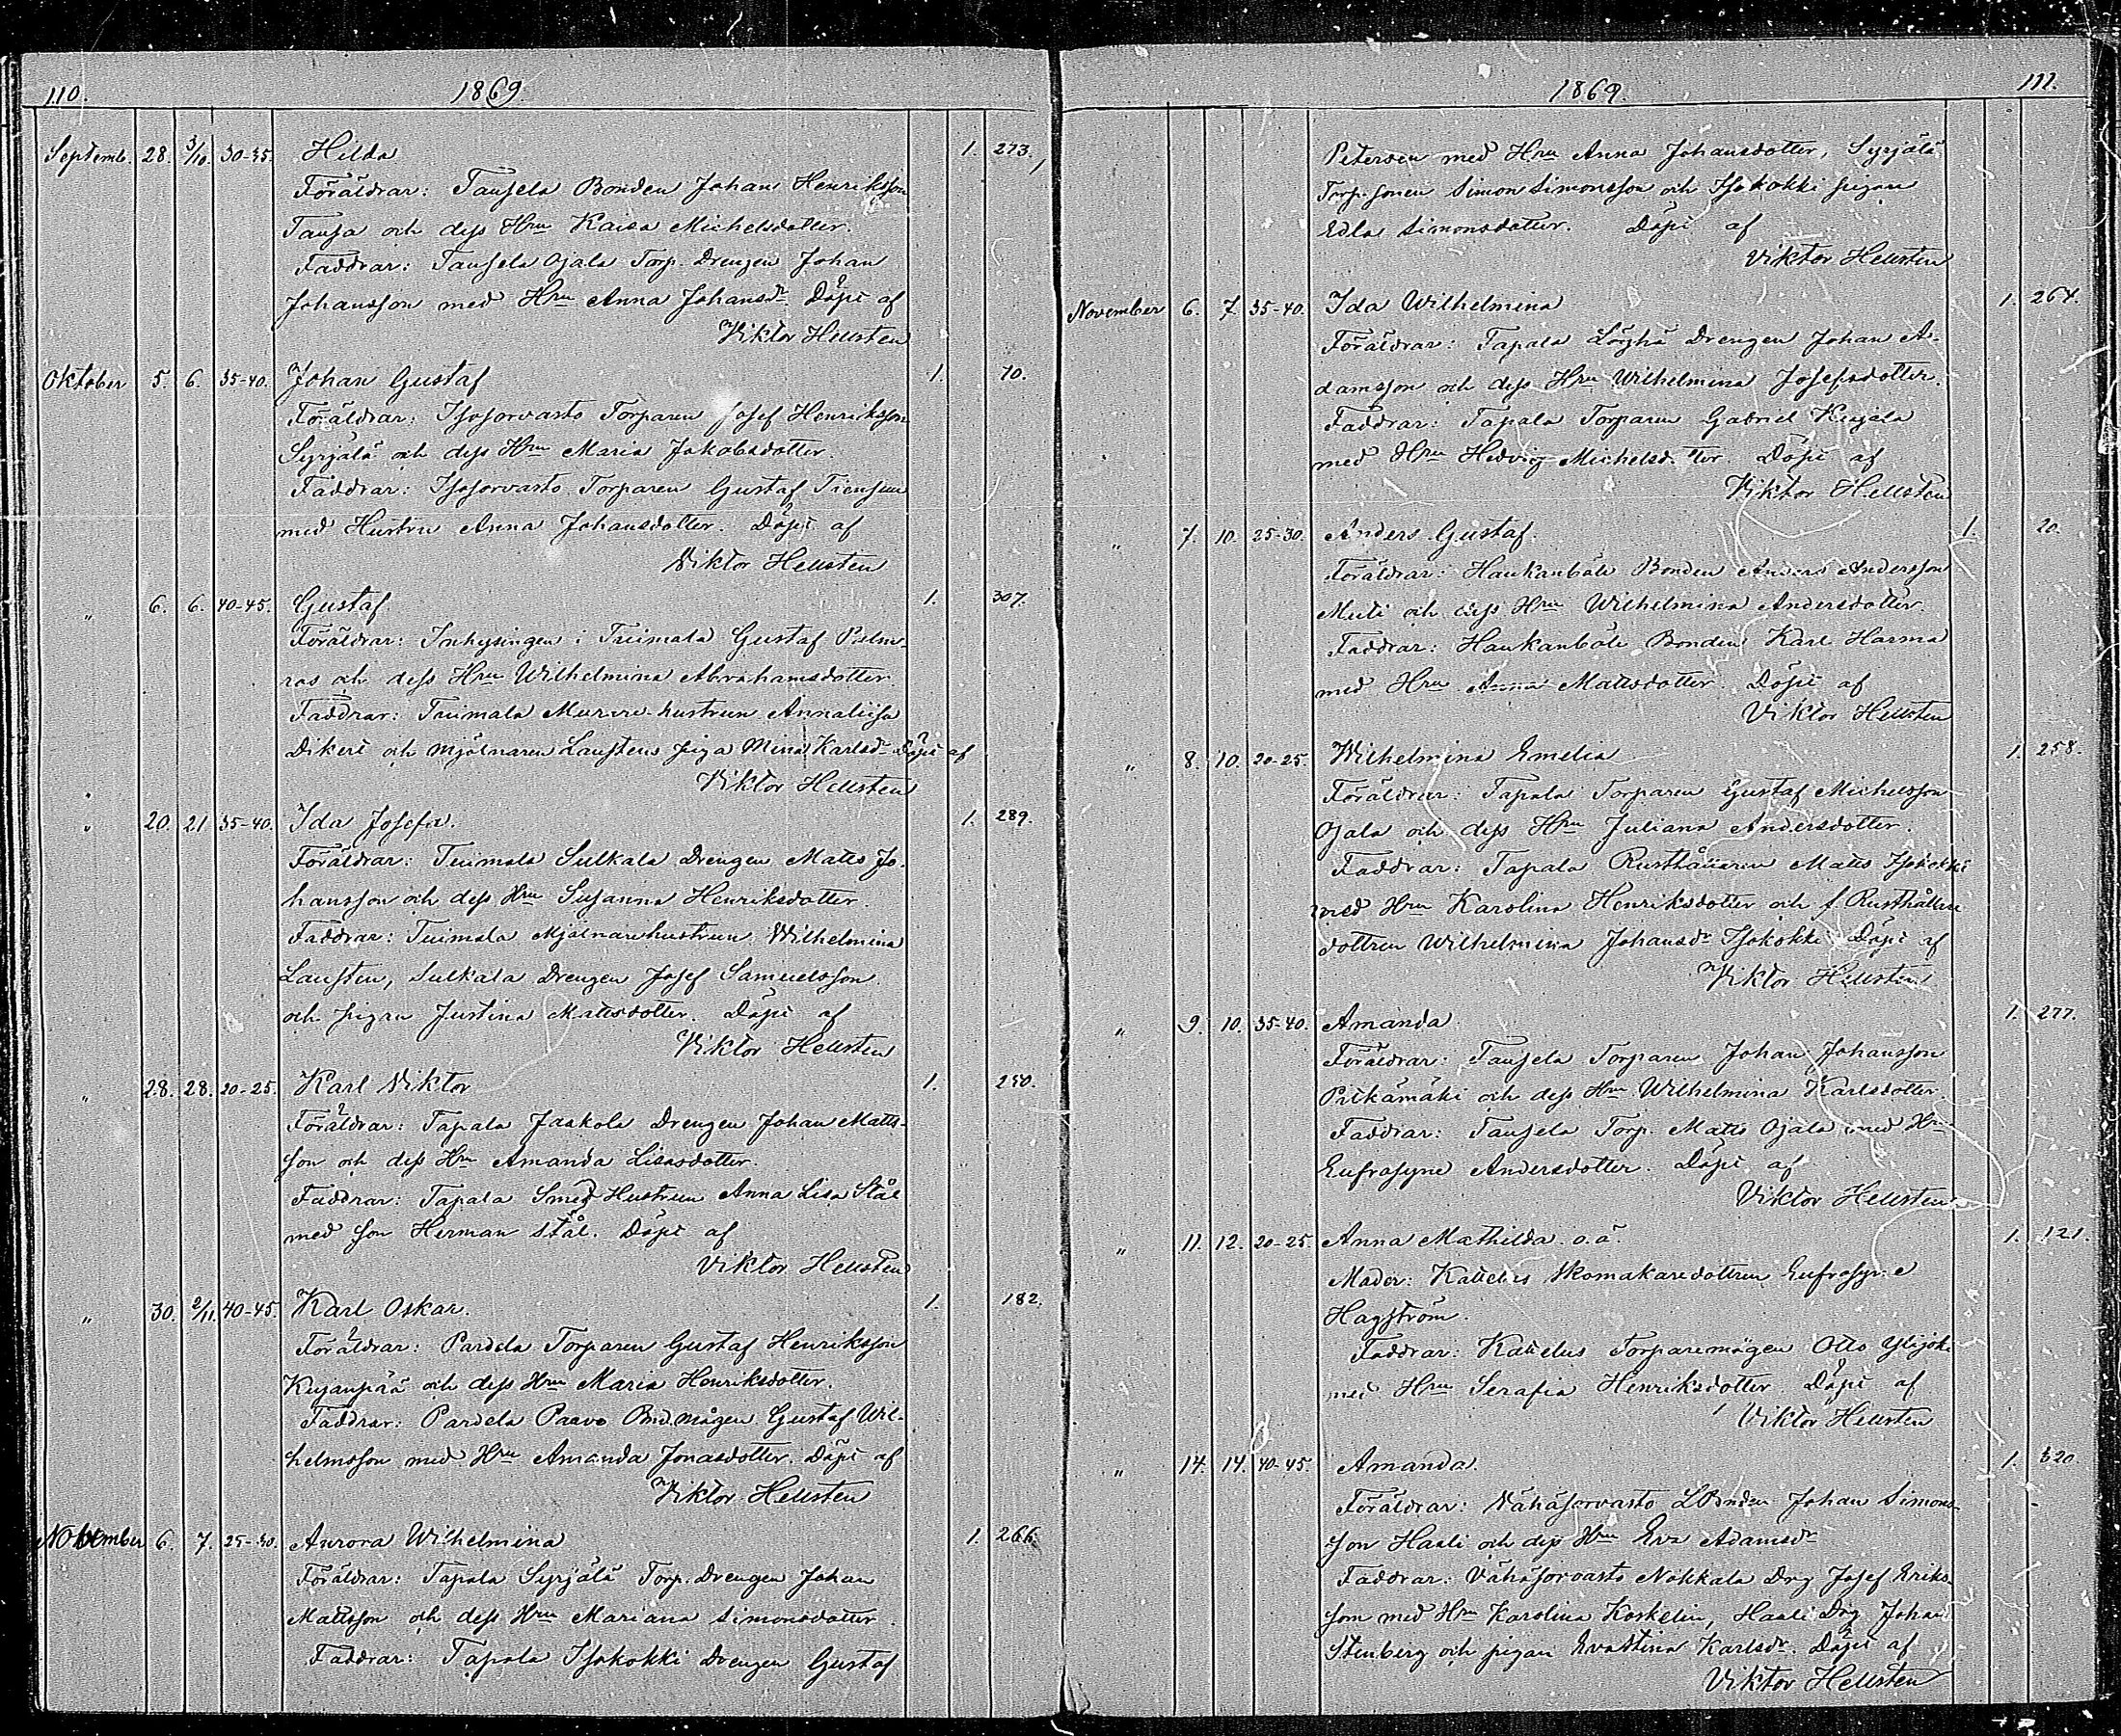 110. 1869.
Septemb. 28. 3/10. 30-35. Hilda 1. 273.
Föräldrar: Tausela Bonden Johan Henriksson
Tausa och dess Hru Kaisa Michelsdotter.
Faddrar: Tausela Ojala Torp. Drengen Johan
Johansson med Hru Anna Johansdr Döpt af
Viktor Hellsten
Oktober 5. 6. 35-40. Johan Gustaf 1. 10.
Föräldrar: Isosorvasto Torparen Josef Henriksson
Syrjälä och dess Hru Maria Jakobsdotter.
Faddrar: Isosorvasto Torparen Gustaf Tiensuu
med Hustru Anna Johansdotter. Döpt af
Viktor Hellsten
" 6. 6. 40-45. Gustaf 1. 307.
Föräldrar: Inhysingen i Tuimala Gustaf Palm-
ros och dess Hru Wilhelmina Abrahamsdotter.
Faddrar: Tuimala Murare-hustrun Annaliisa
Dikert och Mjölnaren Laustens piga Mina Karlsdr Döpt af
Viktor Hellsten
" 20. 21 35-40. Ida Josefa. 1. 289.
Föräldrar: Tuimala Sulkala Drengen Matts Jo-
hansson och dess Hru Susanna Henriksdotter.
Faddrar: Tuimala Mjölnarehustrun Wilhelmina
Lausten, Sulkala Drengen Josef Samuelsson
och pigan Justina Mattsdotter. Döpt af
Viktor Hellsten
" 28. 28. 20-25. Karl Viktor 1. 250.
Föräldrar: Tapala Jaakola Drengen Johan Matts-
son och dess Hru Amanda Lisasdotter.
Faddrar: Tapala Smed Hustrun Anna Lisa Stål
med Son Herman Stål. Döpt af
Viktor Hellsten
" 30. 2/11. 40-45. Karl Oskar. 1. 182.
Föräldrar: Pardela Torparen Gustaf Henriksson
Kujanpää och dess Hru Maria Henriksdotter.
Faddrar: Pardela Paavo Bnd.mågen Gustaf Wil-
helmsson med Hru Amanda Jonasdotter. Döpt af
Viktor Hellsten
November 6. 7. 25-30. Aurora Wilhelmina 1. 266.
Föräldrar: Tapala Syrjälä Torp. Drengen Johan
Mattsson och dess Hru Mariana Simonsdotter.
Faddrar: Tapala Isokokki Drengen Gustaf
1869. 111.
Petersen med Hru Anna Johansdotter, Syrjälä
Torp. sonen Simon Simonsson och Isokokki pigan
Edla Simonsdotter. Döpt af
Viktor Hellsten
November 6. 7. 35-40. Ida Wilhelmina 1. 264.
Föräldrar: Tapala Drengen Johan A-
damsson och dess Hru Wilhelmina Josefsdotter.
Faddrar: Tapala Torparen Gabriel Kujala
med Hru Hedvig Michelsd.tter. Döpt af
Viktor Hellsten
" 7. 10. 25-30. Anders Gustaf. 1. 20.
Föräldrar: Haukanböle Bonden Anders Andersson
Muti och dess Hru Wilhelmina Andersdotter.
Faddrar: Haukanböle Bonden Karl Harma
med Hru Anna Mattsdotter. Döpt af
Viktor Hellsten
" 8. 10. 20-25. Wilhelmina Emelia 1. 258.
Föräldrar: Tapala Torparen Gustaf Michelsson
Ojala och dess Hru Juliana Andersdotter.
Faddrar: Tapala Rusthållaren Matts Isokokki
med Hru Karolina Henriksdotter och f. Rusthållare
dottren Wilhelmina Johansdr Isokokki Döpt af
Viktor Hellsten
" 9. 10. 35-40. Amanda 1. 277.
Föräldrar: Tausela Torparen Johan Johansson
Pitkämäki och dess Hru Wilhelmina Karlsdotter.
Faddrar: Tausela Torp. Matts Ojala med Hru
Eufrosyne Andersdotter. Döpt af
Viktor Hellsten
" 11. 12. 20-25. Anna Mathilda. o.ä. 1. 121.
Moder: Kattelus Skomakaredottren Eufrosyne
Hagström.
Faddrar: Kattelus Torparemågen Otto Ylijoki
med Hru Serafia Henriksdotter. Döpt af
Viktor Hellsten
" 14. 14. 40-45. Amanda. 1. 620
Föräldrar: Vähäsorvasto LBonden Johan Simons-
son Haali och dess Hru Eva Adamsdr
Faddrar: Vähäsorvasto Nokkala Drg Josef Eriks-
son med Hru Karolina Koskelin, Haali Drg Johan
Stenberg och pigan Evastina Karlsdr. Döpt af
Viktor Hellsten